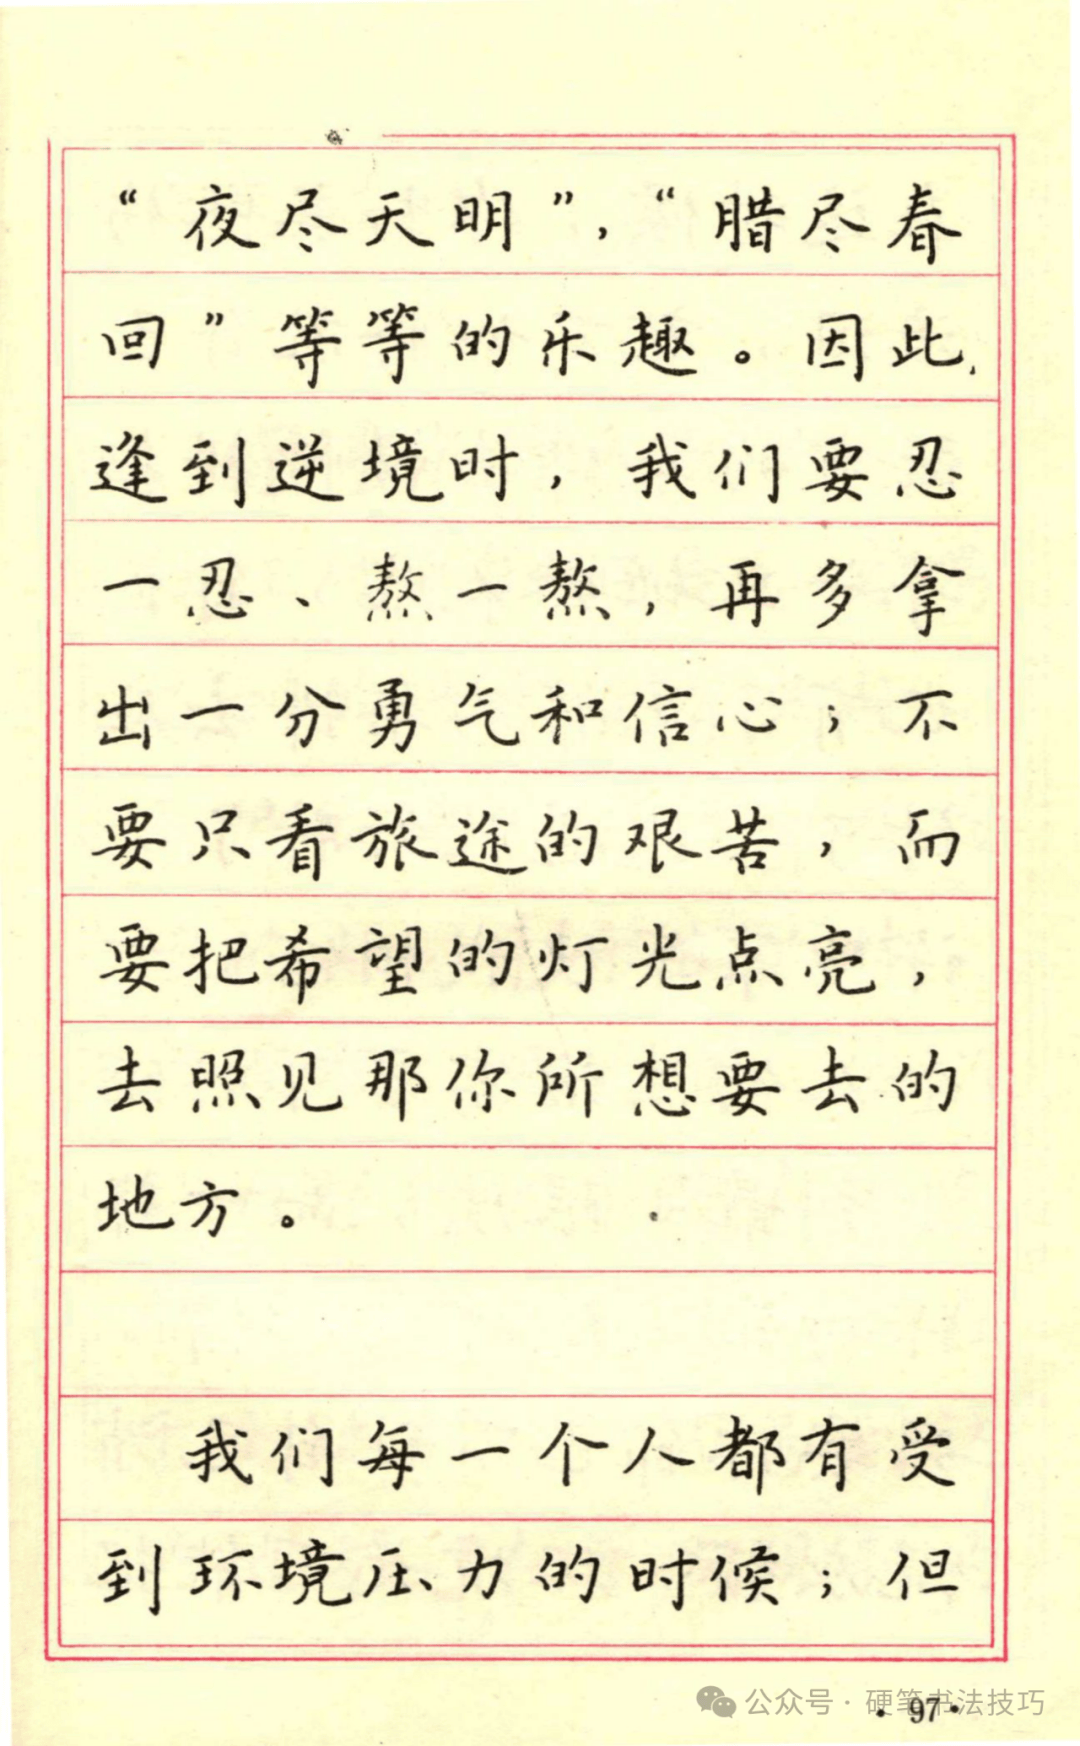 “夜尽天明”，“腊尽春
回”等等的乐趣。因此，
逢到逆境时，我们要忍
一忍、熬一熬，再多拿
出一分勇气和信心；不
要只看旅途的艰苦，而
要把希望的灯光点亮，
去照见那你所想要去的
地方。
我们每一个人都有受
到环境压力的时候；但
公众号·硬笔书法技巧
·97·